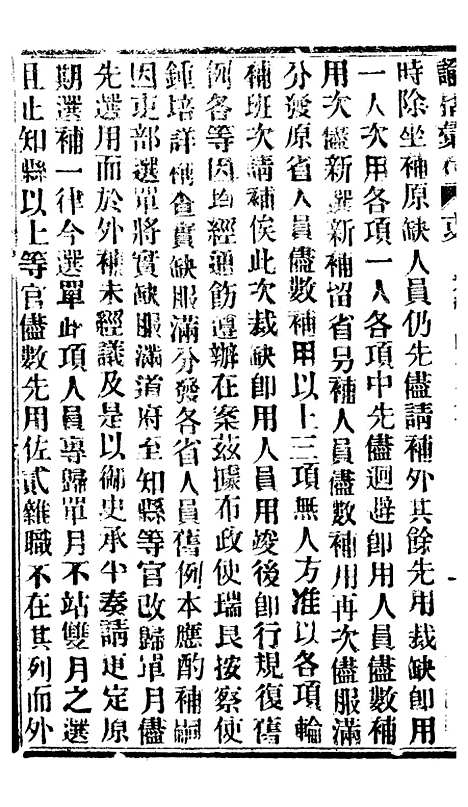 諭摺彙存
時除坐補原缺人員仍先儘請補外其餘先用裁缺卽用
一人次用各項一人各項中先儘迴避卽用人員儘數補
用次儘新選新補留省另補人員儘數補用再次儘服滿
分發原省人員儘數補用以上三項無人方准以各項輪
補班次請補俟此次裁缺卽用人員用竣後卽行規復舊
例各等因均經通飭遵辦在案茲據布政使瑞良按察使
鍾培詳稱查實缺服滿分發各省人員舊例本應酌補嗣
因吏部選單將實缺服滿道府至知縣等官改歸單月儘
先選用而於外補未經議及是以御史承平奏請更定原
期選補一律今選單此項人員專歸單月不站雙月之選
且止知縣以上等官儘數先用佐貳雜職不在其列而外